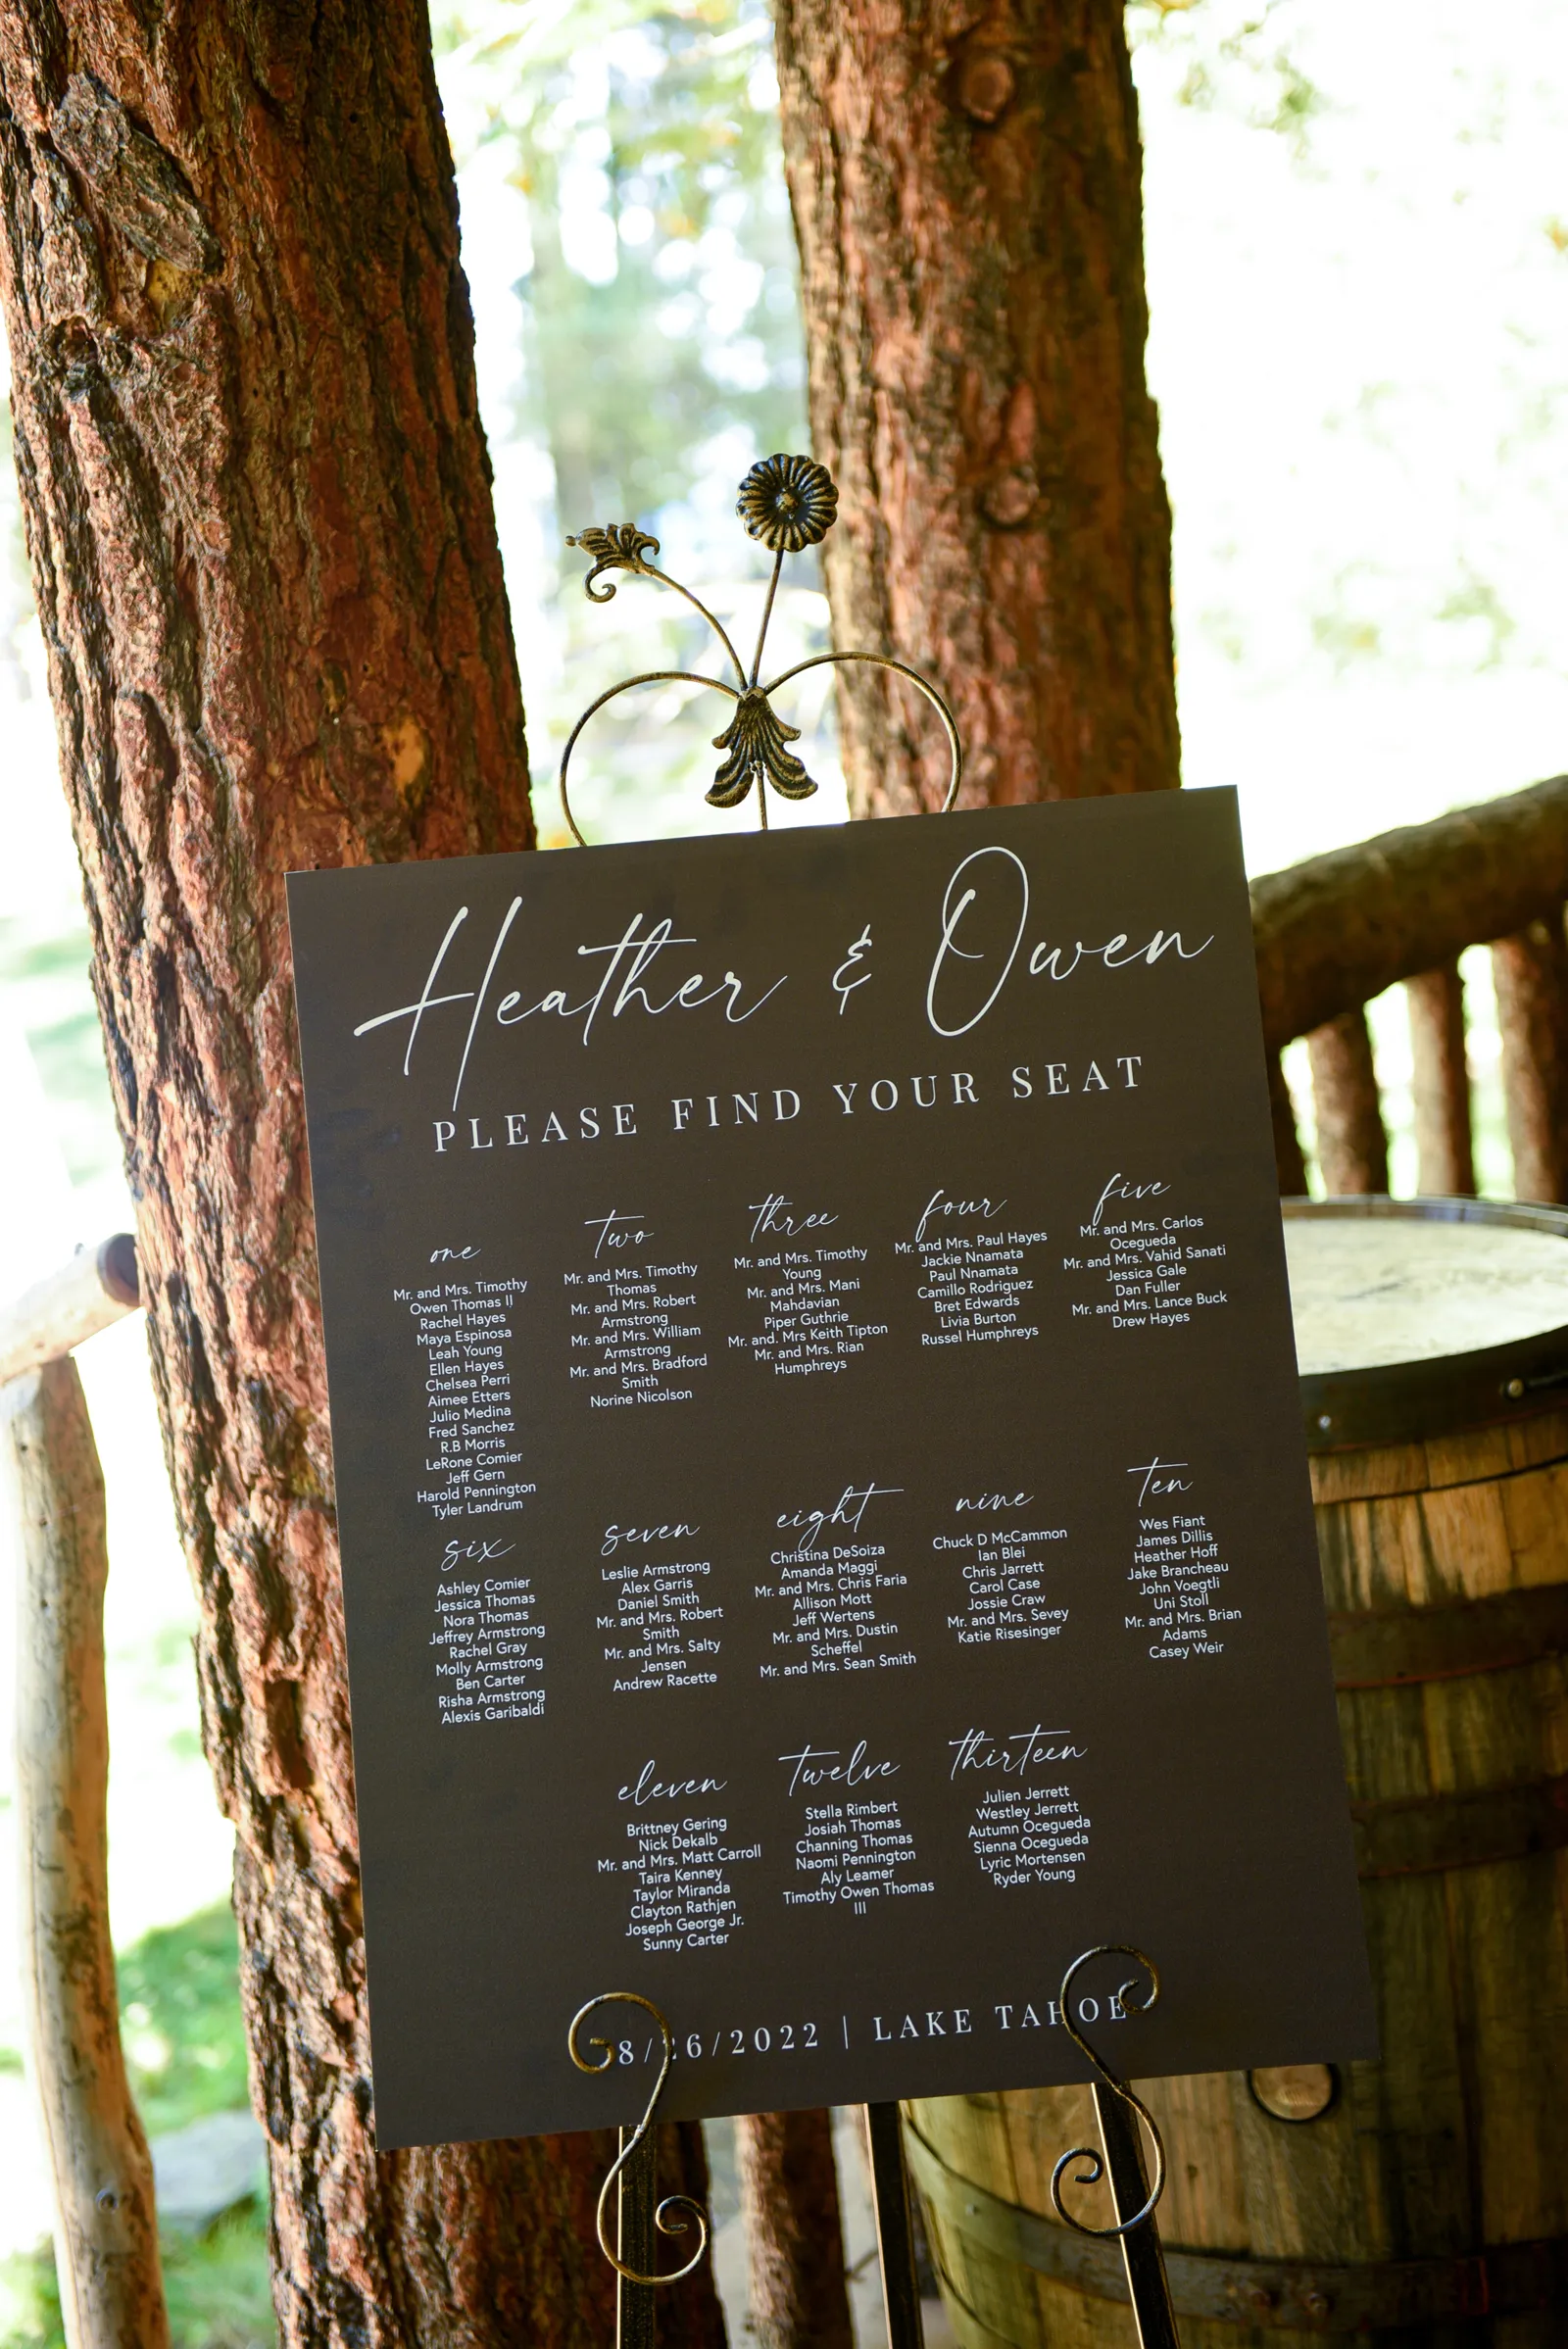 Heather & Owen
PLEASE FIND YOUR SEAT
one
Mr. and Mrs. Timothy
Owen Thomas II
Rachel Hayes
Maya Espinosa
Leah Young
Ellen Hayes
Chelsea Perri
Aimee Etters
Julio Medina
Fred Sanchez
R.B Morris
LeRone Comier
Jeff Gern
Harold Pennington
Tyler Landrum
two
Mr. and Mrs. Timothy
Thomas
Mr. and Mrs. Robert
Armstrong
Mr. and Mrs. William
Armstrong
Mr. and Mrs. Bradford
Smith
Norine Nicolson
three
Mr. and Mrs. Timothy
Young
Mr. and Mrs. Mani
Mahdavian
Piper Guthrie
Mr. and. Mrs Keith Tipton
Mr. and Mrs. Rian
Humphreys
four
Mr. and Mrs. Paul Hayes
Jackie Nnamata
Paul Nnamata
Camillo Rodriguez
Bret Edwards
Livia Burton
Russel Humphreys
five
Mr. and Mrs. Carlos
Ocegueda
Mr. and Mrs. Vahid Sanati
Jessica Gale
Dan Fuller
Mr. and Mrs. Lance Buck
Drew Hayes
six
Ashley Comier
Jessica Thomas
Nora Thomas
Jeffrey Armstrong
Rachel Gray
Molly Armstrong
Ben Carter
Risha Armstrong
Alexis Garibaldi
seven
Leslie Armstrong
Alex Garris
Daniel Smith
Mr. and Mrs. Robert
Smith
Mr. and Mrs. Salty
Jensen
Andrew Racette
eight
Christina DeSoiza
Amanda Maggi
Mr. and Mrs. Chris Faria
Allison Mott
Jeff Wertens
Mr. and Mrs. Dustin
Scheffel
Mr. and Mrs. Sean Smith
nine
Chuck D McCammon
Ian Blei
Chris Jarrett
Carol Case
Jossie Craw
Mr. and Mrs. Sevey
Katie Risesinger
ten
Wes Fiant
James Dillis
Heather Hoff
Jake Brancheau
John Voegtli
Uni Stoll
Mr. and Mrs. Brian
Adams
Casey Weir
eleven
Brittney Gering
Nick Dekalb
Mr. and Mrs. Matt Carroll
Taira Kenney
Taylor Miranda
Clayton Rathjen
Joseph George Jr.
Sunny Carter
twelve
Stella Rimbert
Josiah Thomas
Channing Thomas
Naomi Pennington
Aly Leamer
Timothy Owen Thomas
III
thirteen
Julien Jerrett
Westley Jerrett
Autumn Ocegueda
Sienna Ocegueda
Lyric Mortensen
Ryder Young
8/26/2022 | LAKE TAHOE